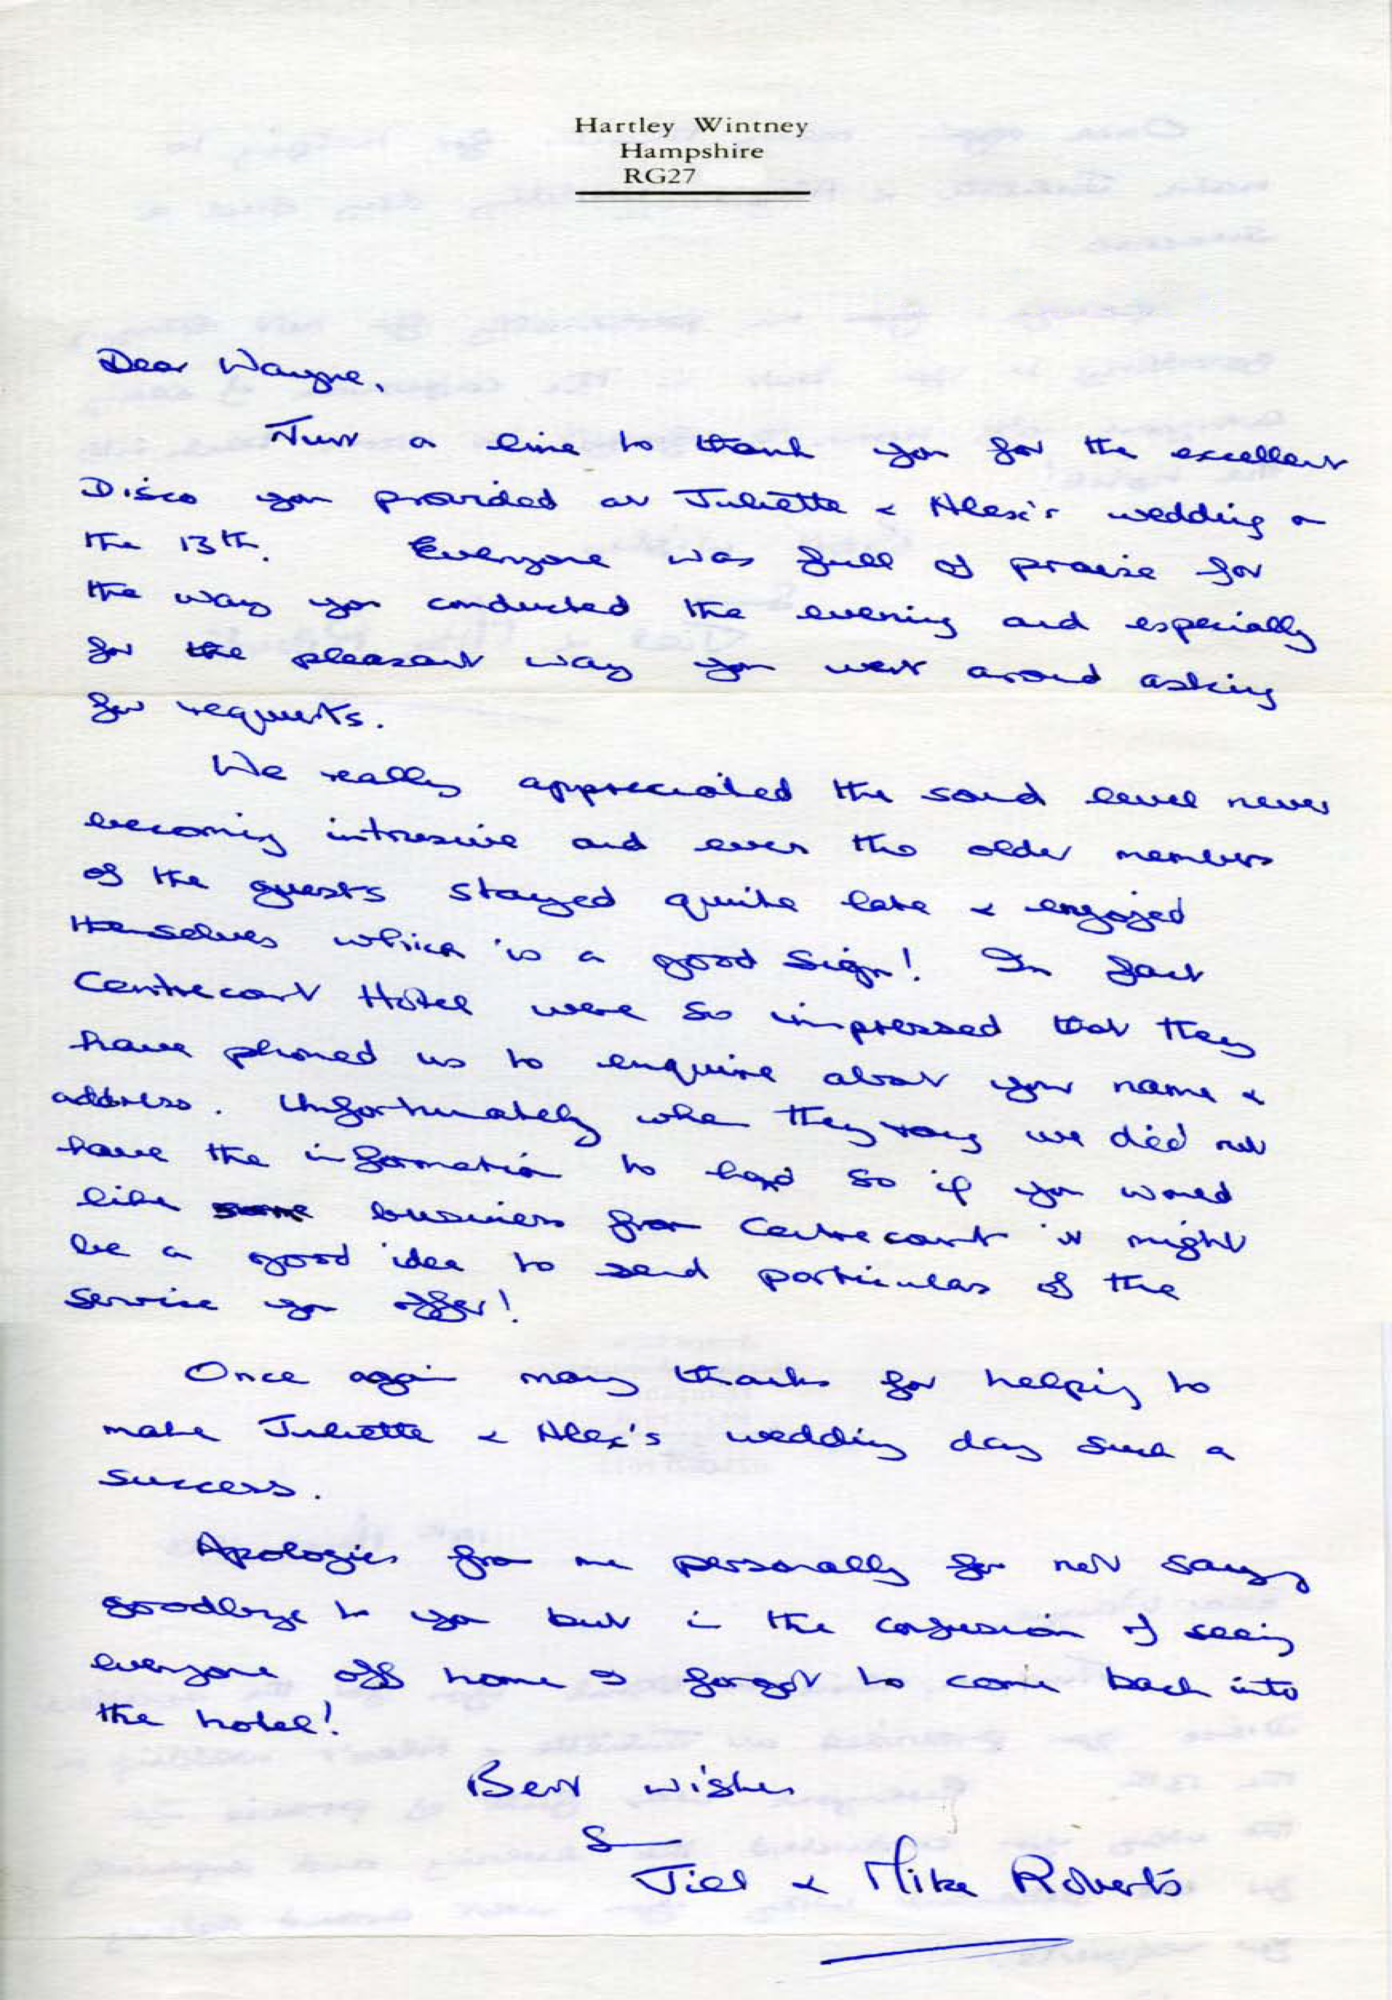 Hartley Wintney
Hampshire
RG27
Dear Wayne,
Just a line to thank you for the excellent
Disco you provided at Juliette & Alex's wedding on
the 13th. Everyone was full of praise for
the way you conducted the evening and especially
for the pleasant way you went around asking
for requests.
We really appreciated the sound level never
becoming intrusive and even the older members
of the guests stayed quite late & enjoyed
themselves which is a good sign! In fact
Centrecourt Hotel were so impressed that they
have phoned us to enquire about your name &
address. Unfortunately when they rang we did not
have the information to hand so if you would
like some business from Centrecourt it might
be a good idea to send particulars of the
service you offer!
Once again many thanks for helping to
make Juliette & Alex's wedding day such a
success.
Apologies from me personally for not saying
goodbye to you but in the confusion of seeing
everyone off home I forgot to come back into
the hotel!
Best wishes
Jill & Mike Roberts